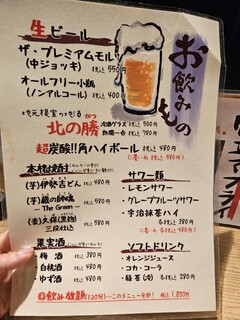 お飲みもの
生ビール
ザ・プレミアムモルツ
(中ジョッキ) 税込 550円
オールフリー小瓶
(ノンアルコール) 税込 400円
地元根室の地酒
かつ
北の勝 冷酒グラス 税込 500円
熱燗一合 税込 780円
超炭酸角ハイボール 税込 480円
本格焼酎
(芋)伊勢吉どん 税込 480円
(芋)蔵の師魂
-The Green- 税込 480円
(麦)久保(黒麹)
三段仕込 税込 480円
果実酒
・梅酒 税込 380円
・白桃酒 税込 480円
・ゆず酒 税込 480円
サワー類
・レモンサワー
・グレープフルーツサワー
・宇治抹茶ハイ
各税込 380円
ソフトドリンク
・オレンジジュース
・コカ・コーラ
・緑茶(冷) 各税込 280円
飲み放題(120分)…このメニュー全部! 税込 1,800円